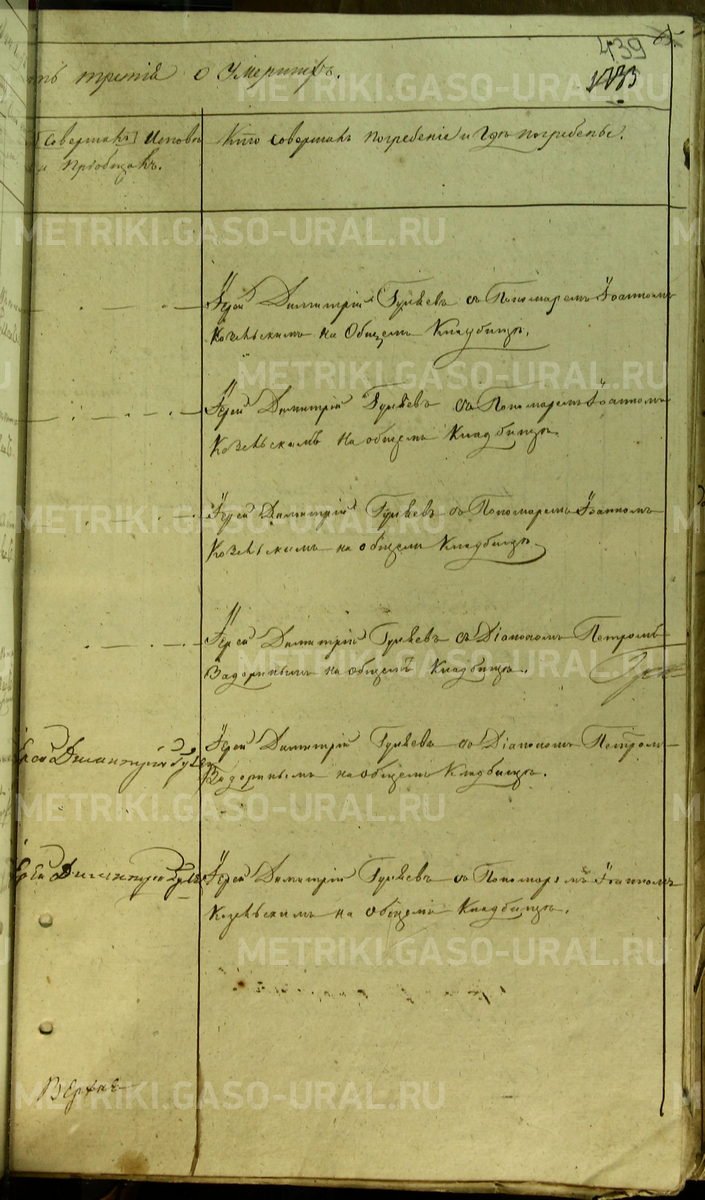 439
ть третія о Умершихъ.
[Совершалъ] Исповѣ
и Пріобщалъ.
Кто совершалъ погребеніе и гдѣ погребены.
Іерей Димитрій Гуляевъ съ Пономаремъ Іоанномъ
Козельскимъ на Общемъ Кладбищѣ.
Іерей Димитрій Гуляевъ съ Пономаремъ Іоанномъ
Козельскимъ на общемъ Кладбищѣ
Іерей Димитрій Гуляевъ съ Пономаремъ Іоанномъ
Козельскимъ на общемъ Кладбищѣ
Іерей Димитрій Гуляевъ съ Діакономъ Петромъ
Задоринымъ на общемъ Кладбищѣ.
Іерей Димитрій Гуляев
Іерей Димитрій Гуляевъ съ Діакономъ Петромъ
Задоринымъ на Общемъ Кладбищѣ.
Іерей Димитрій Гуляев
Іерей Димитрій Гуляевъ съ Пономаремъ Іоанномъ
Козельскимъ на общемъ Кладбищѣ.
Верхне
METRIKI.GASO-URAL.RU